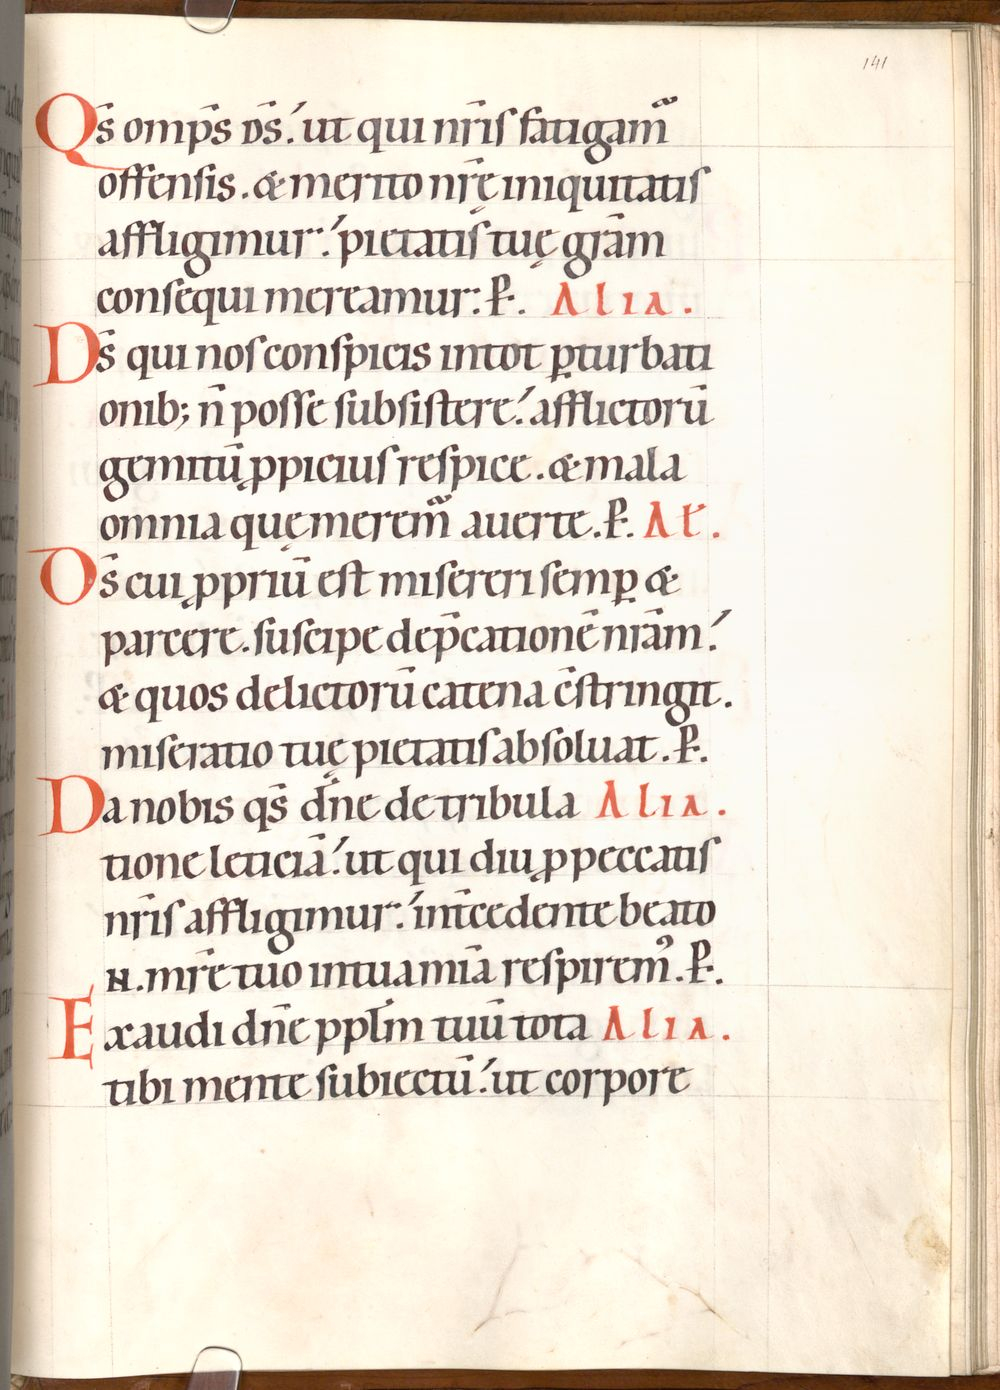 141
Qs̄ omp̄s ds̄ ut qui nr̄is fatigam̄
offensis . & merito nr̄ę iniquitatis
affligimur : pietatis tuę gr̄am
consequi mereamur : ꝑ. Alia .
Ds̄ qui nos conspicis in tot ꝑturbati
onib; n̄ posse subsistere : afflictorū
gemitū ꝓpicius respice . & mala
omnia quę merem̄ auerte . ꝑ. Al̄.
Ds̄ cui ꝓpriū est misereri semꝑ &
parcere . suscipe dep̄cationē nr̄am :
& quos delictorū catena c̄stringit .
miseratio tuę pietatis absoluat . ꝑ.
Da nobis qs̄ dn̄e de tribula Alia .
tione leticiā : ut qui diu ꝓ peccatis
nr̄is affligimur : int̄cedente beato
N . mr̄e tuo in tua mīa respirem᾿ . ꝑ.
Exaudi dn̄e ppl̄m tuū tota Alia .
tibi mente subiectū : ut corpore